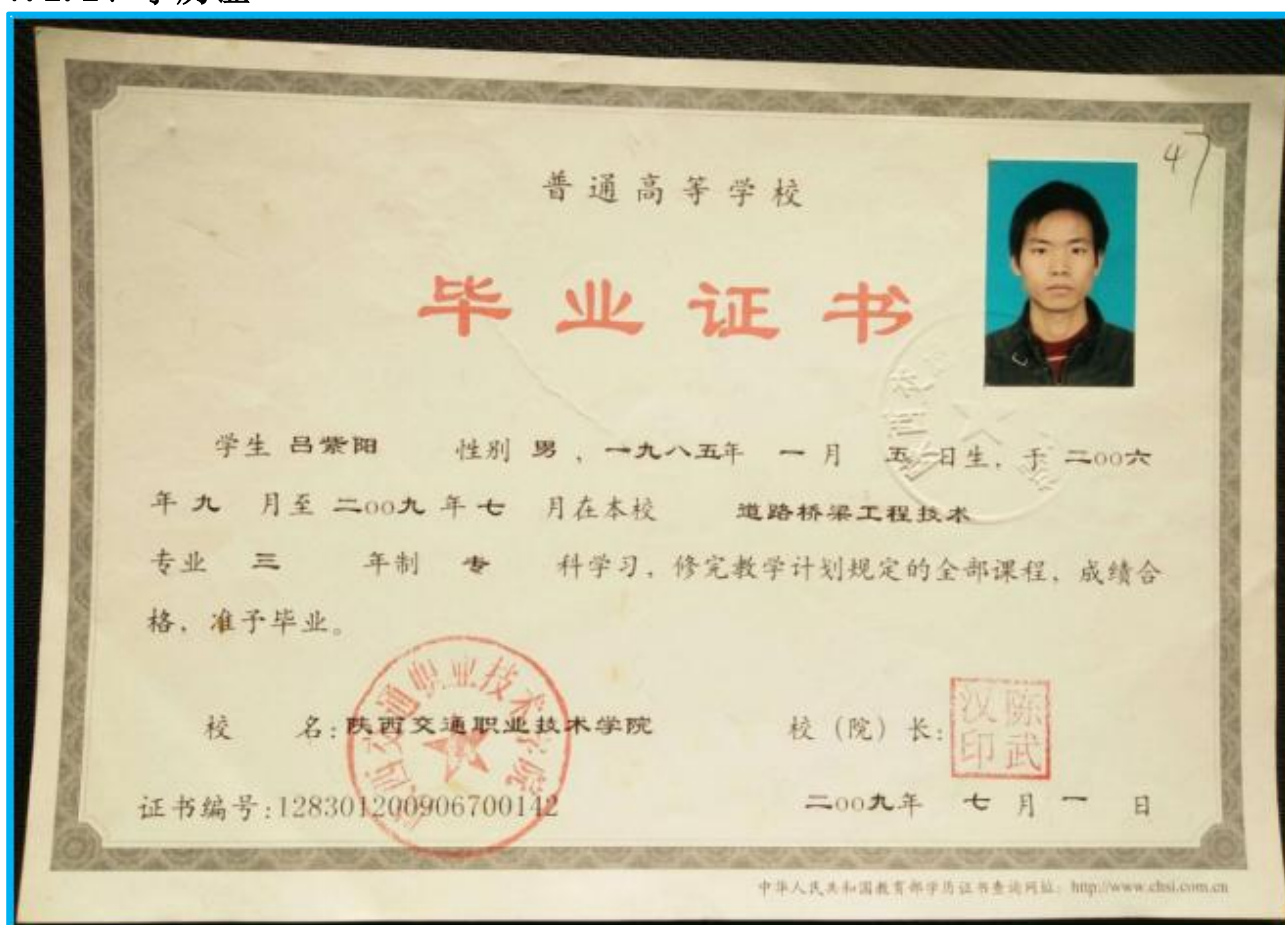 47
普通高等学校
毕业证书
学生 吕紫阳 性别 男 ，一九八五年 一 月 五 日生，于 二○○六
年 九 月至 二○○九 年 七 月在本校 道路桥梁工程技术
专业 三 年制 专 科学习，修完教学计划规定的全部课程，成绩合
格，准予毕业。
校 名：陕西交通职业技术学院 校（院）长：
陈武汉印
证书编号：128301200906700142 二○○九年 七 月 一 日
中华人民共和国教育部学历证书查询网址：http://www.chsi.com.cn